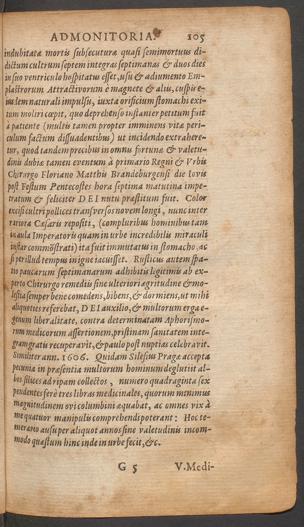 ADMONITORIA. 105
indubitatæ mortis subsecuturæ quasi semimortuus di-
dictum cultrum septem integras septimanas & duos dies
in suo ventriculo hospitatus esset, usu & adiumento Em-
plastrorum Attractivorum è magnete & aliis, cuspis e-
iusdem naturali impulsu, iuxta orificium stomachi exi-
tum moliri cœpit, quo deprehenso instanter petitum fuit
à patiente (multis tamen propter imminens vitæ peri-
culum factum dissuadentibus) ut incidendo extrahere-
tur, quod tandem precibus in omnem fortunæ & valetu-
dinis dubiæ tamen eventum à primario Regni & Vrbis
Chirurgo Floriano Matthis Brandeburgensi die Iovis
post Festum Pentecostes hora septima matutina impe-
tratum & feliciter DEI nutu præstitum fuit. Color
excisi cultri pollices transversos novem longi, nunc inter
rariora Cæsaris repositi, (compluribus hominibus tam
in aula Imperatoris quam in urbe incredibilis miraculi
instar commōstrati) ita fuit immutatus in stomacho, ac
si per illud tempus in igne iacuisset. Rusticus autem spa-
tio paucarum septimanarum adhibitis legitimis ab ex-
perto Chirurgo remediis sine ulteriori agritudine & mo-
lestia semper bene comedens, bibens, & dormiens, ut mihi
aliquoties referebat, DEI auxilio, & multorum erga e-
genum liberalitate, contra determinatam Aphorismo-
rum medicorum assertionem, pristinam sanitatem inte-
gram gratis recuperavit, & paulo post nuptias celebravit.
Similiter ann. 1606. Quidam Silesius Pragæ accepta
pecunia in præsentia multorum hominum deglutiit al-
bos silices ad ripam collectos, numero quadraginta sex
pendentes ferè tres libras medicinales, quorum minimus
magnitudinem ovi columbini æquabat, ac omnes vix à
me quatuor manipulis comprehendi poterant: Hoc te-
merario ausu per aliquot annos sine valetudinis incom-
modo quæstum hinc inde in urbe fecit, &c.
G 5 V. Medi-